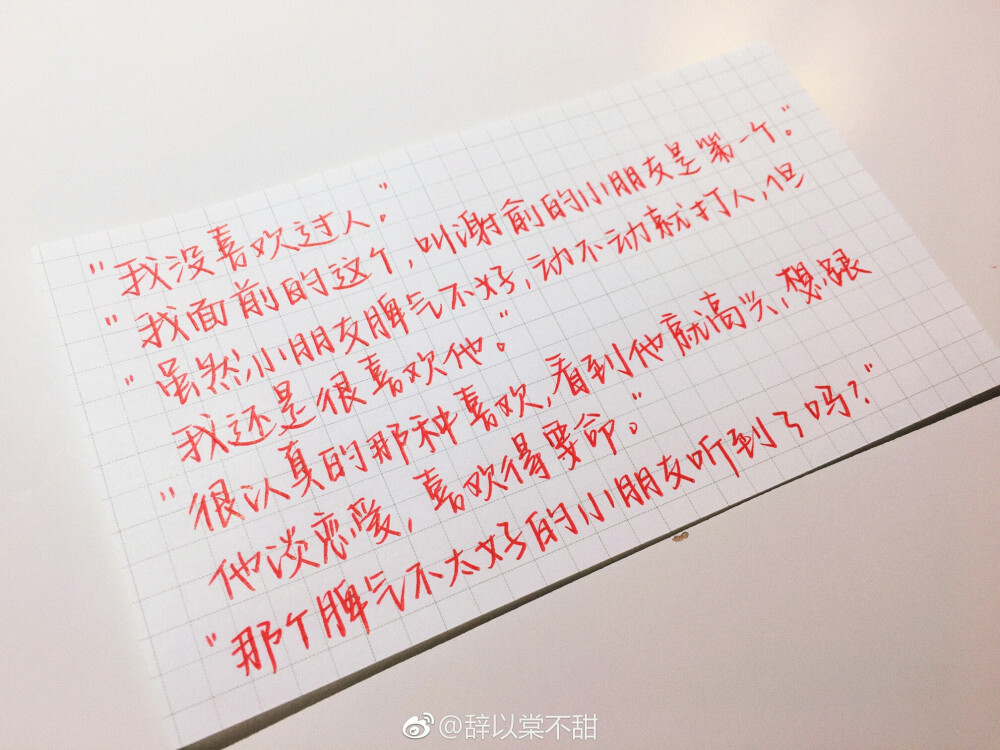 "我没喜欢过人。"
"我面前的这个,叫谢俞的小朋友是第一个。"
"虽然小朋友脾气不好,动不动就打人,但
我还是很喜欢他。"
"很认真的那种喜欢,看到他就高兴,想跟
他淡恋爱,喜欢得要命。"
"那个脾气不太好的小朋友听到了吗?"
@辞以棠不甜